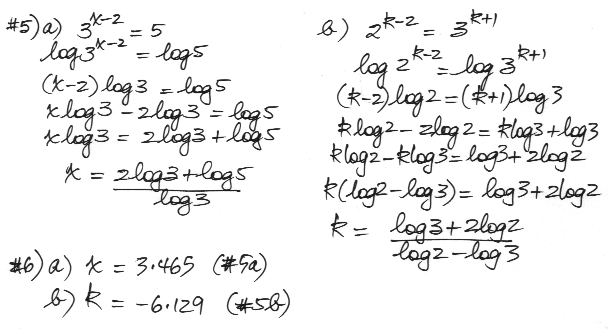 #5) a) 3^(x-2) = 5
log3^(x-2) = log5
(x-2)log3 = log5
xlog3 - 2log3 = log5
xlog3 = 2log3 + log5
x = (2log3 + log5)/log3
b) 2^(k-2) = 3^(k+1)
log 2^(k-2) = log 3^(k+1)
(k-2)log2 = (k+1)log3
klog2 - 2log2 = klog3 + log3
klog2 - klog3 = log3 + 2log2
k(log2 - log3) = log3 + 2log2
k = (log3 + 2log2)/(log2 - log3)
#6) a) x = 3.465 (#5a)
b) k = -6.129 (#5b)